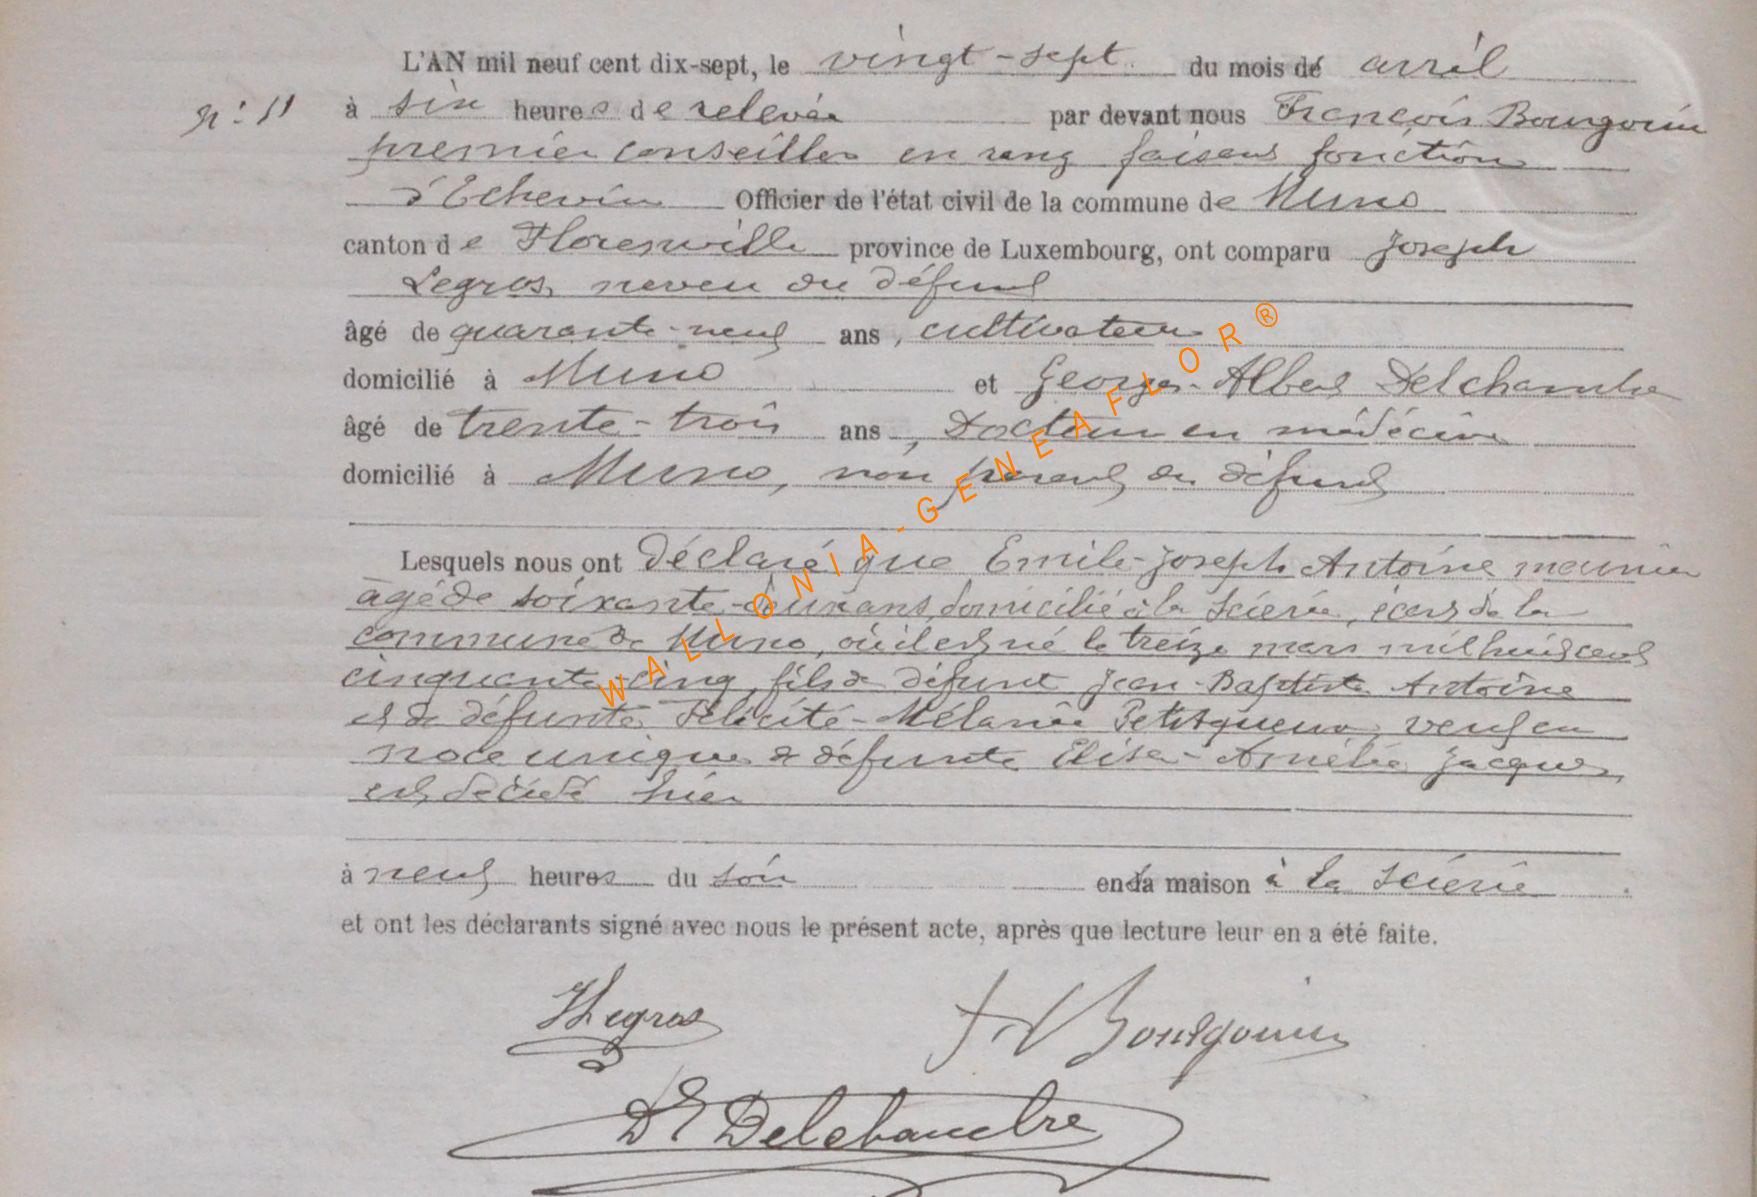 L'AN mil neuf cent dix-sept, le vingt-sept du mois de avril
N: 11
à six heures de relevée par devant nous François Bourgouin
premier conseiller en rang faisant fonction
d'Echevin Officier de l'état civil de la commune de Muno
canton de Florenville province de Luxembourg, ont comparu Joseph
Legros, neveu du défunt
âgé de quarante-neuf ans, cultivateur
domicilié à Muno et Georges-Albert Delchambre
âgé de trente-trois ans, Docteur en médécine
domicilié à Muno, non parent du défunt
Lesquels nous ont déclaré que Emile-Joseph Antoine meunier
âgé de soixante-deux ans, domicilié à la Scierie, écart de la
commune de Muno, où il est né le treize mars mil huit cent
cinquante-cinq, fils de défunt Jean-Baptiste Antoine
et de défunte Félicité-Mélanie Petitqueux, veuf en
noce unique de défunte Elisa-Amélie Jacques,
est décédé hier
à neuf heures du soir en sa maison à la Scierie.
et ont les déclarants signé avec nous le présent acte, après que lecture leur en a été faite.
JLegros
Bourgouin
Dr Delchambre
WALLONIA-GENEAFLOR®